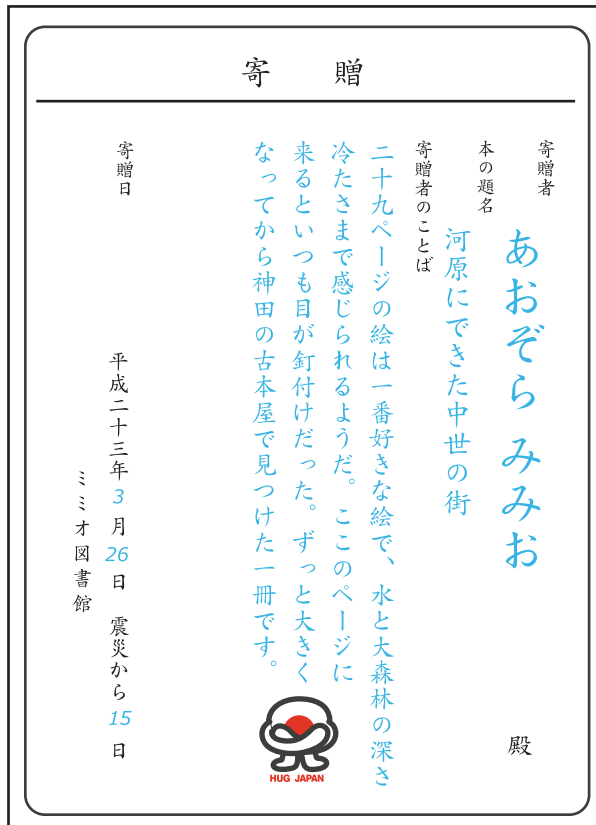 寄　贈
寄贈者
あおぞら みみお
殿
本の題名
河原にできた中世の街
寄贈者のことば
二十九ページの絵は一番好きな絵で、水と大森林の深さ
冷たさまで感じられるようだ。ここのページに
来るといつも目が釘付けだった。ずっと大きく
なってから神田の古本屋で見つけた一冊です。
HUG JAPAN
寄贈日
平成二十三年3月26日　震災から15日
ミミオ図書館